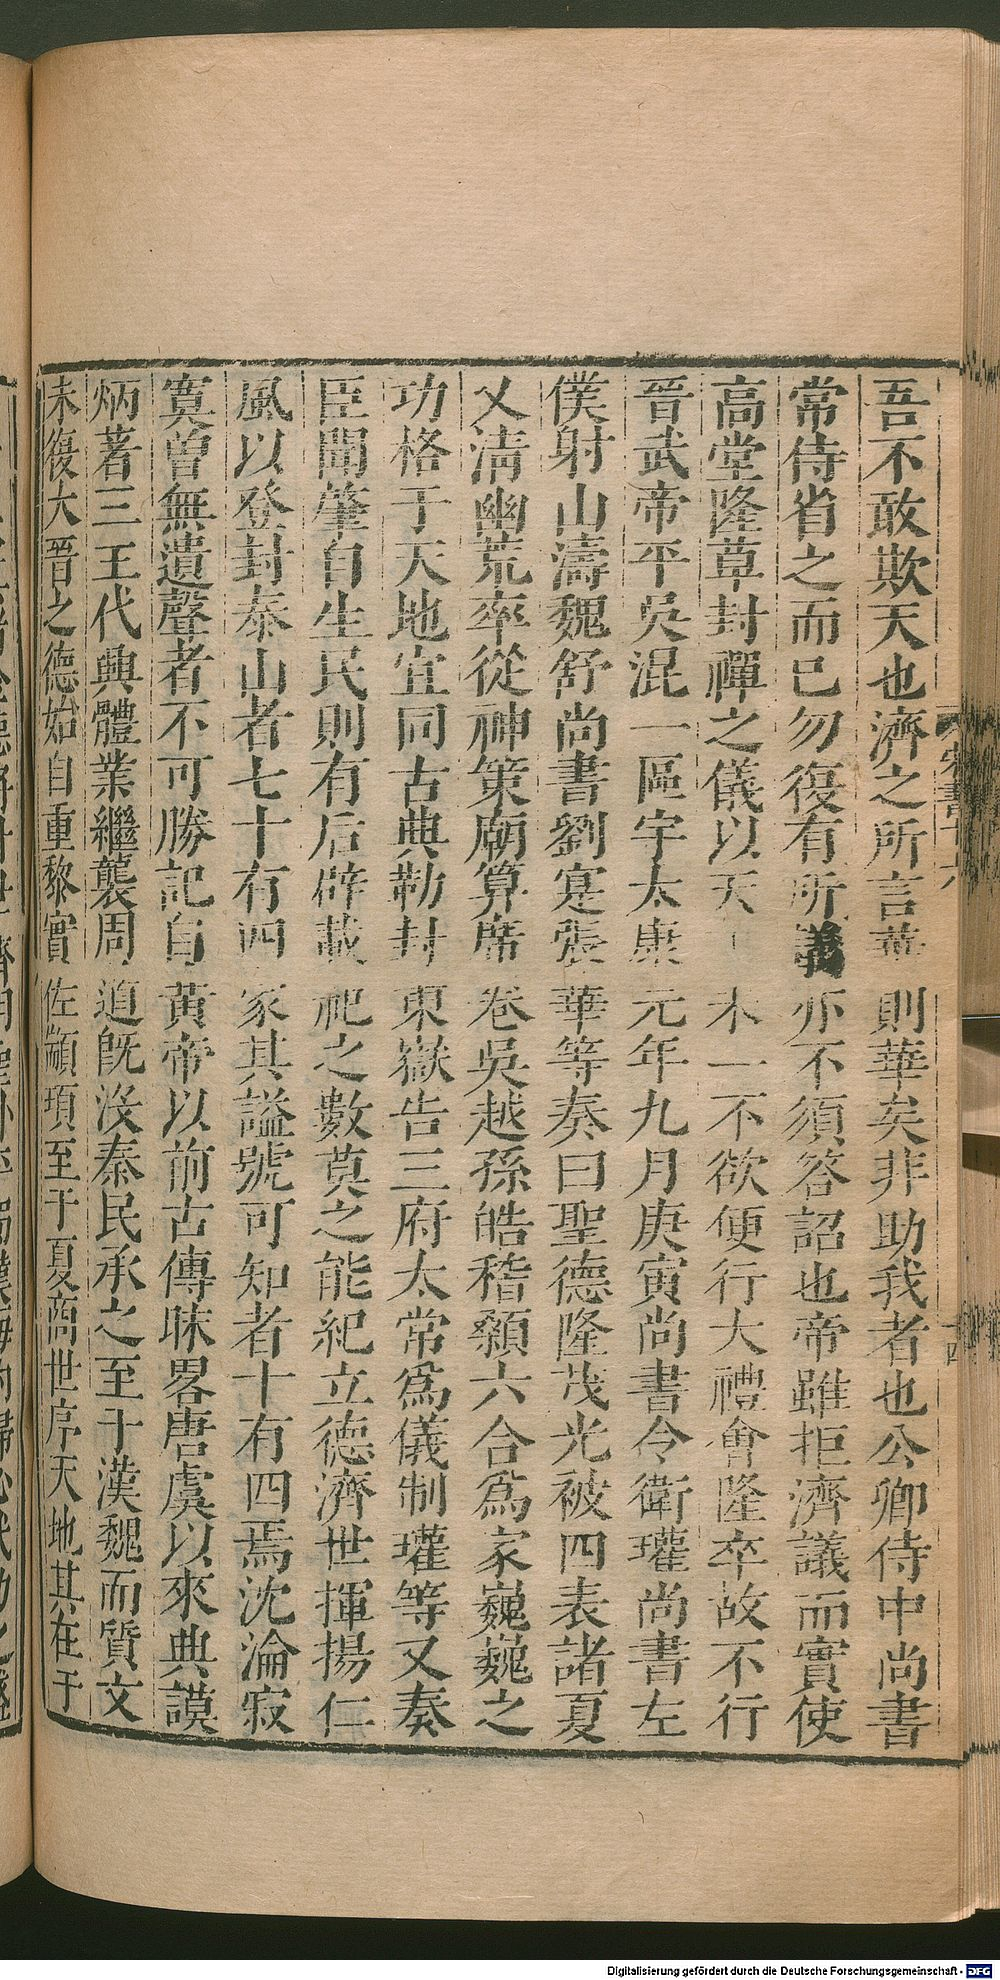 吾不敢欺天也濟之所言華則華矣非助我者也公卿侍中尚書
常侍省之而已勿復有所議亦不須答詔也帝雖拒濟議而實使
高堂隆草封禪之儀以天未一不欲便行大禮會隆卒故不行
晉武帝平吳混一區宇太康元年九月庚寅尚書令衛瓘尚書左
僕射山濤魏舒尚書劉寔張華等奏曰聖德隆茂光被四表諸夏
乂清幽荒率從神策廟算席卷吳越孫皓稽顙六合爲家巍巍之
功格于天地宜同古典勒封東嶽告三府太常爲儀制瓘等又奏
臣聞肇自生民則有后辟載祀之數莫之能紀立德濟世揮揚仁
風以登封泰山者七十有四家其謚號可知者十有四焉沈淪寂
寞曾無遺聲者不可勝記自黃帝以前古傳昧畧唐虞以來典謨
炳著三王代興體業繼襲周道旣沒秦民承之至于漢魏而質文
未復大晉之德始自重黎實佐顓頊至于夏商世序天地其在于
Digitalisierung gefördert durch die Deutsche Forschungsgemeinschaft - DFG